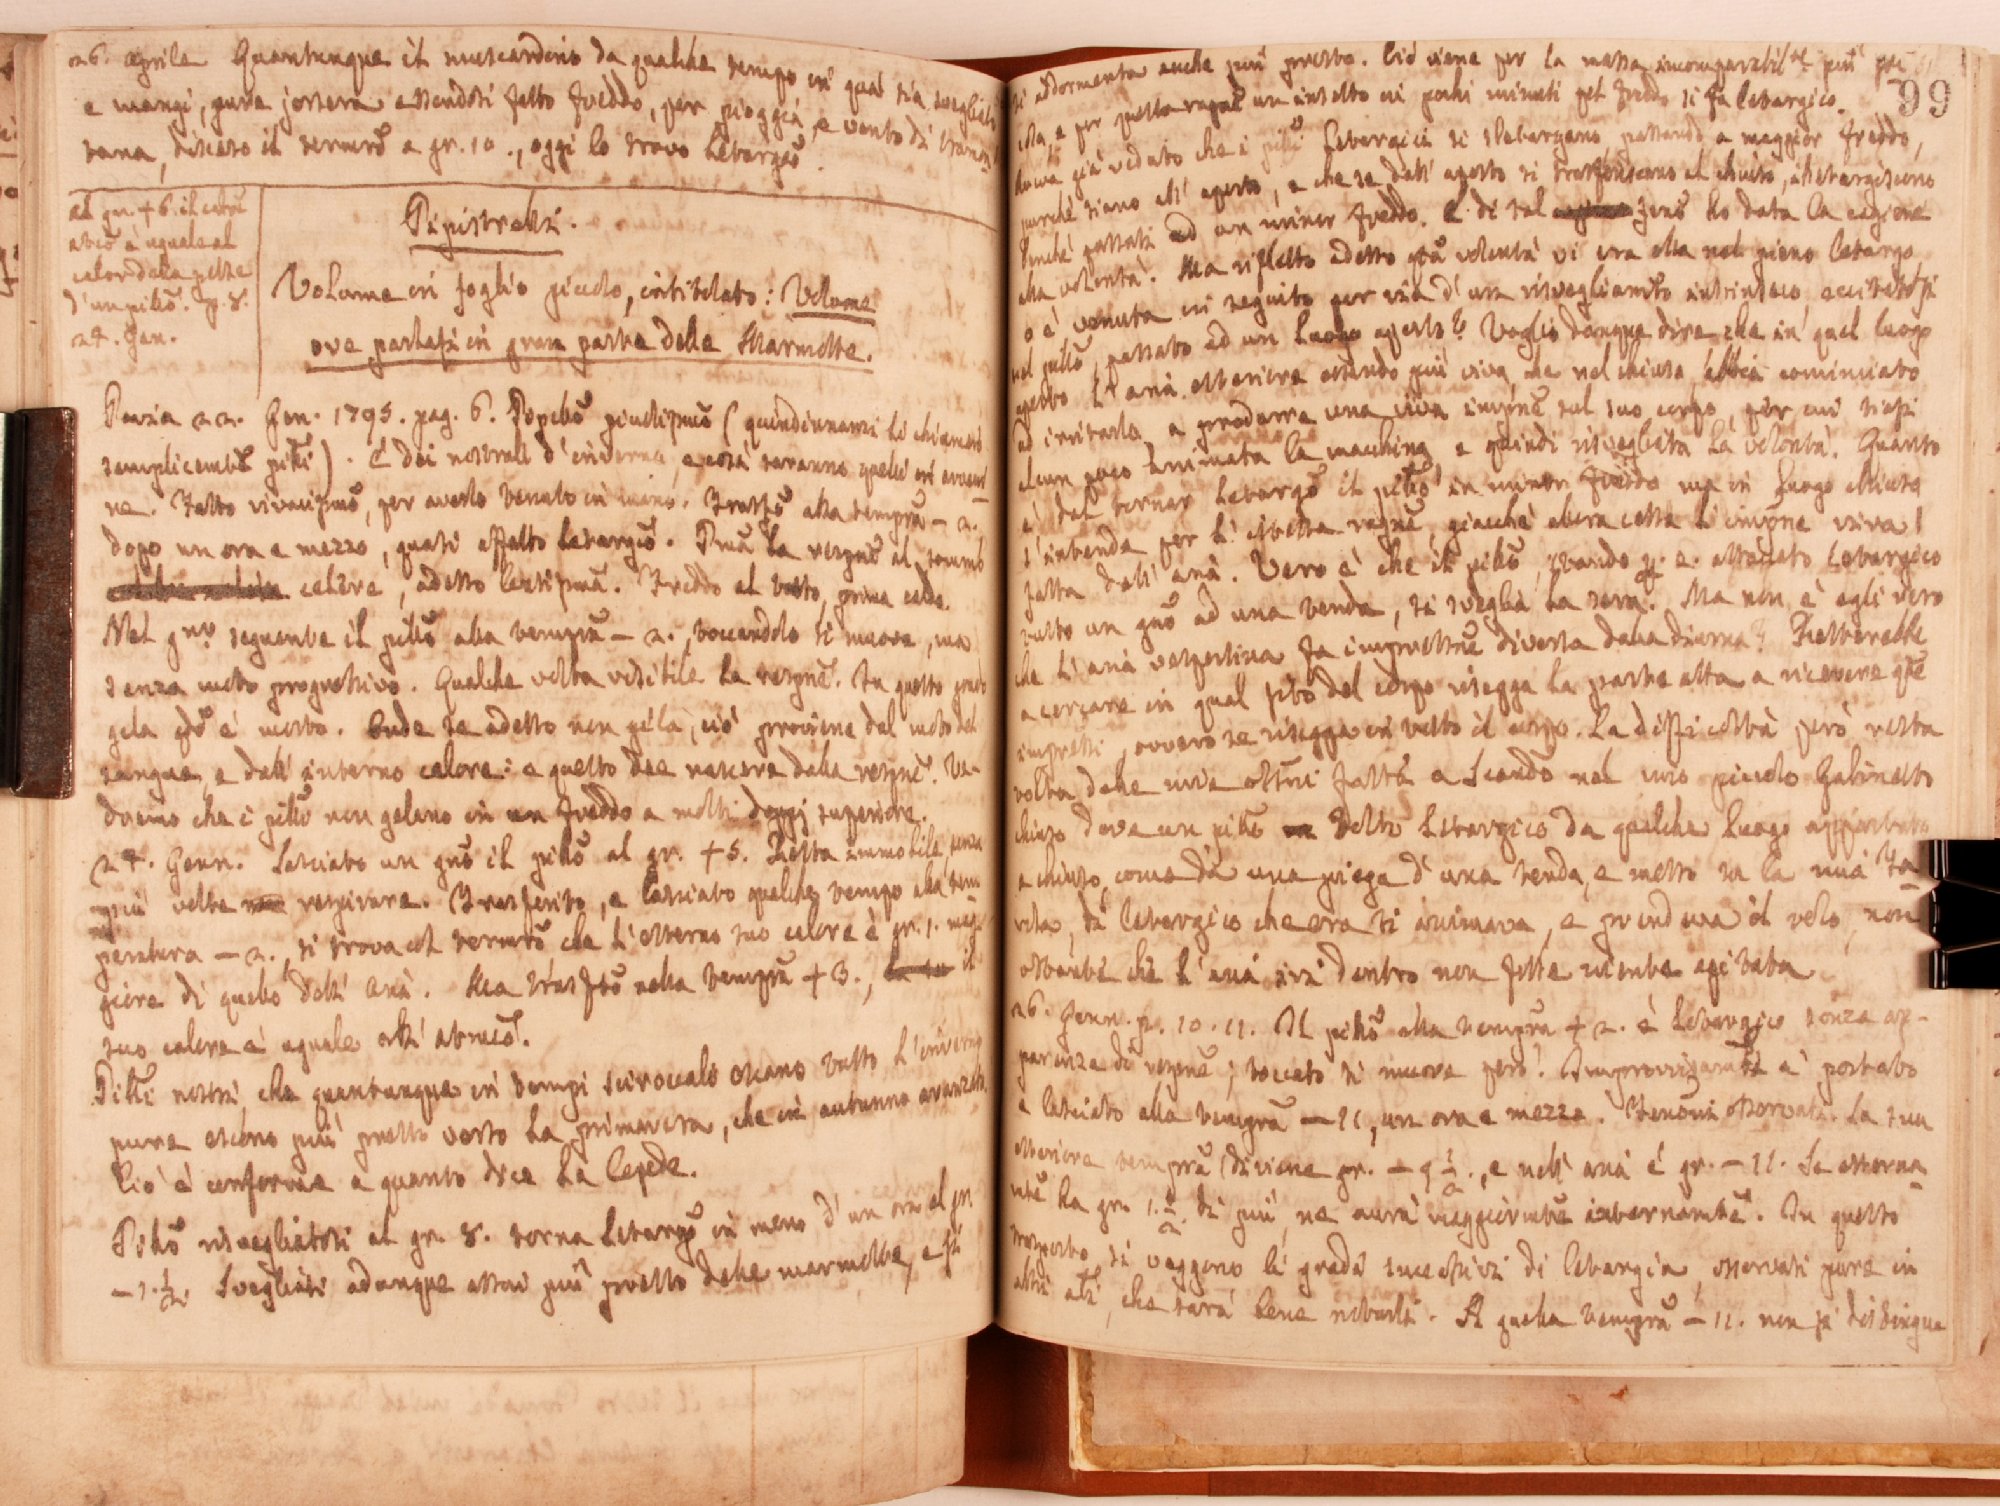 26. aprile Quantunque il muscardino da qualche tempo in qua sia svegliato
e mangi, pure jersera essendosi fatto freddo, per pioggia, e vento di tramon-
tana, disceso il termrõ a gr. 10., oggi lo trovo letargcõ.
Al gr. +6. il calor
è uguale al
calor della pelle
d'un pillõ. p. 8.
24. Gen.
Pipistrelli.
Volume in foglio piccolo, intitolato: Volume
ove parlasi in gran parte delle Marmotte.
Pavia 22. Gen. 1795. pag. 6. (quindinnanzi li chiamerò
semplicemtẽ pillĩ). È dei nostrali d'inverno, e così saranno quelli in avveni-
re. Fatto vivacissmõ, per averlo tenuto in mano. Trasftõ alla tempr̃a – 2.
dopo un ora e mezzo, quasi affatto letargcõ. Prima la respnẽ al sommo
celere, adesso lentissmã. Freddo al tatto, prima caldo.
Nel gnõ seguente il pillõ alla tempr̃a – 2., toccandolo si muove, ma
senza moto progressivo. Qualche volta visibile la respnẽ. In questo grado
gela qdõ è morto. Onde se adesso non gela, ciò proviene dal moto del
sangue, e dall' interno calore: e questo dee nascere dalla respnẽ. Ve-
dremo che i pillĩ non gelano in un freddo a molti doppj superiore.
24. Genn. Lasciato un gnõ il pillõ al gr. +5. Resta immobile, senza
più volte respirare. Trasferito, e lasciato qualche tempo alla tem-
peratura – 2., si trova col termrõ che l'esterno suo calore è gr. 1. mag-
giore di quello dell' aria. Ma trasftõ nella tempr̃a +3., il
suo calore è uguale all'
Pillĩ nostri, che quantunque in tempi sciroccali escano tutto l'inverno
pure escono più presto verso la primavera, che in autunno avanzato.
Ciò è conforme a quanto dice La Cepede.
Pillõ risvegliatosi al gr. 8. torna letargcõ in meno d'un ora al gr.
– 1.½. Svegliasi adunque assai più presto delle marmotte, e
99
si addormenta anche più presto. Ciò viene per la massa incomparabilte più pic-
cola, e per questa ragne un insetto in pochi minuti pel freddo si fa letargico.
già veduto che i pillĩ letargici si sletargano, passando a maggior freddo,
purché siano all' aperto, e che se dall' aperto si trasferiscano al chiuso, alletargiscono
benché passati ad un minor freddo. E di tal ho data la cagione
alla volontà. Ma rifletto adesso qtã volontà vi era ella nel pieno letargo
o è venuta in seguito per via d'un risvegliamtõ intrinseco
nel pillõ, passato ad un luogo aperto? Voglio dunque dire che in quel luogo
aperto l'aria esteriore essendo più viva, che nel chiuso, abbia cominciato
ad irritarlo, a produrre una viva impnẽ sul suo corpo, per cui siasi
alcun poco animata la macchina e quindi risvegliata la volontà. Quanto
è dal tornar letargcõ il pillõ in minor freddo ma in luogo chiuso
s'intende per l'istessa ragnẽ, giacchè allora cessa l'impnẽ viva
fatta dall' aria. Vero è che il pillõ, stando p. e. attaccato letargico
tutto un gnõ ad una tenda, si sveglia la sera. Ma non è egli vero
che l'aria vespertina fa impressne diversa dalla diurna? Resterebbe
a cercare in qual sito del corpo risegga la parte atta a ricevere qtẽ
impressi, ovvero se risegga in tutto il corpo. La difficoltà però resta
volta delle mie ossnĩ fatte a Scando nel mio piccolo Gabinetto
chiuso dove un pillõ tolto letargico da qualche luogo appartato
e chiuso, come da una piega d'una tenda, e messo su la mia ta-
vola, di letargico che era si animava, e prendeva il volo, non
ostante che l'aria ivi dentro non fosse niente agitata.
26. Genn. p. 10. 11. Il pillõ alla tempr̃a + 2. è letargico senza ap-
parenza di respnẽ; toccato si muove però. Improvvisamtẽ è portato
e lasciato alla tempr̃a – 11, un ora e mezza. Fenomi osservati. La sua
esteriore tempr̃a diviene gr. – 9½., e nell' aria è gr. – 11. Se esterna-
mtẽ ha gr. 1.½. di più, ne avrà maggiormtẽ internamtẽ. In questo
trasporto si veggono li gradi successivi di letargia, osservati pure in
altri alĩ, che sarà bene notarli. A quella tempr̃a – 11. non si distingue